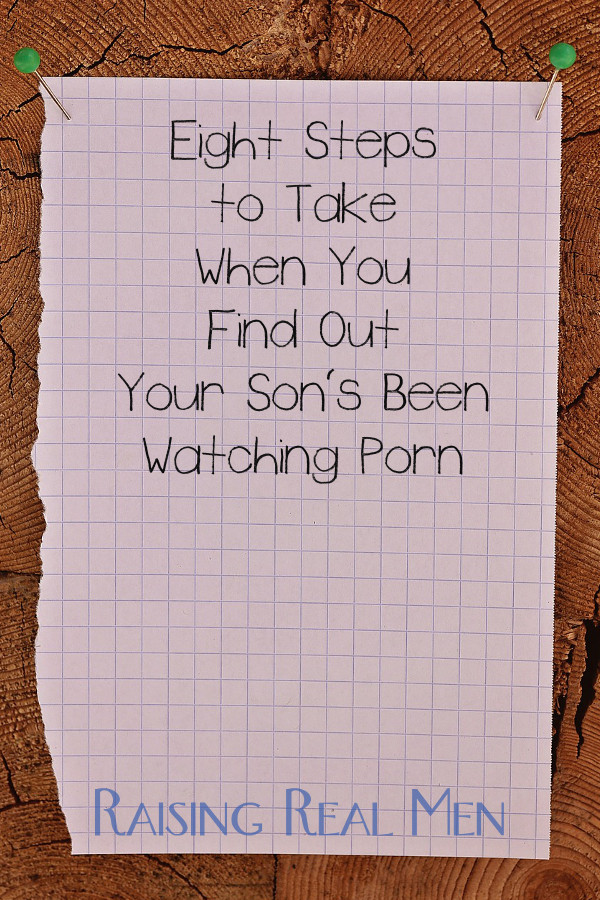 Eight Steps
to Take
When You
Find Out
Your Son's Been
Watching Porn
Raising Real Men